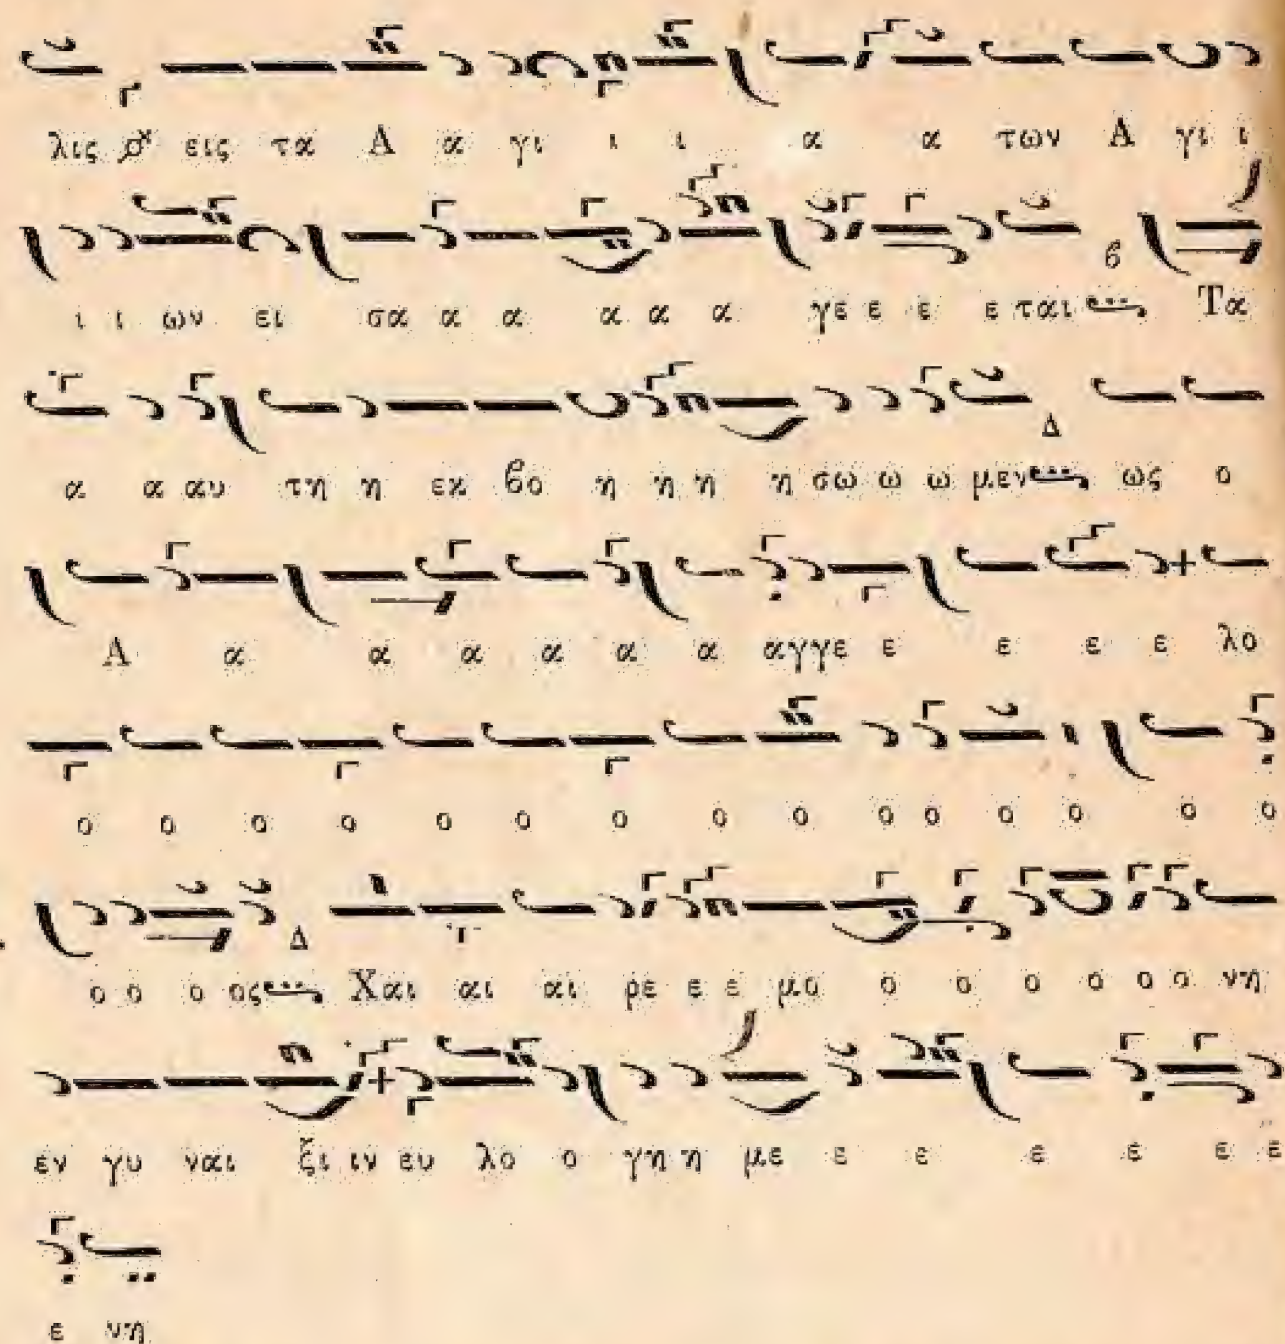 λις εις τα Α α γι ι ι α α των Α γι ι
ι ι ων ει σα α α α α α γε ε ε ε ται Τα
α α αυ τη η εκ βο η η η η σω ω ω μεν ως ο
Α α α α α α α αγγε ε ε ε ε λο
ο ο ο ο ο ο ο ο ο ο ο ο ο ο ο
ο ο ο ος Χαι αι αι ρε ε ε μο ο ο ο ο ο ο νη
εν γυ ναι ξι ιν ευ λο ο γη η με ε ε ε ε ε ε
ε νη